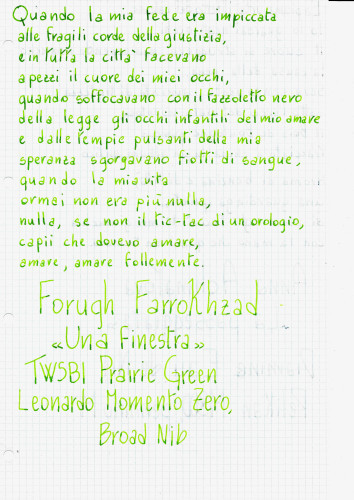 Quando la mia fede era impiccata
alle fragili corde della giustizia,
e in tutta la città facevano
a pezzi il cuore dei miei occhi,
quando soffocavano con il fazzoletto nero
della legge gli occhi infantili del mio amare
e dalle tempie pulsanti della mia
speranza sgorgavano fiotti di sangue,
quando la mia vita
ormai non era più nulla,
nulla, se non il tic-tac di un orologio,
capii che dovevo amare,
amare, amare follemente.
Forugh Farrokhzad
«Una Finestra»
TWSBI Prairie Green
Leonardo Momento Zero,
Broad Nib